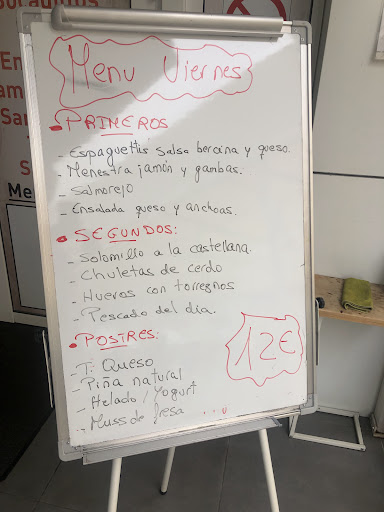 Bocadillos
En
am
San
S
Me
Menu Viernes
• PRIMEROS
- Espaguettis salsa beroina y queso.
- Menestra jamón y gambas.
- Salmorejo
- Ensalada queso y anchoas.
• SEGUNDOS:
- Solomillo a la castellana.
- Chuletas de cerdo
- Huevos con torreznos
- Pescado del día.
• POSTRES:
- T. Queso
- Piña natural
- Helado / Yogurt
- Muss de fresa ...
12€